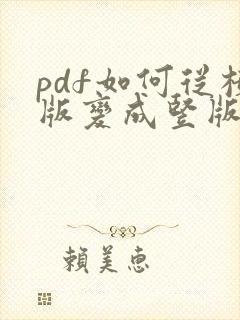 pdf如何從
版變成豎版
賴美惠